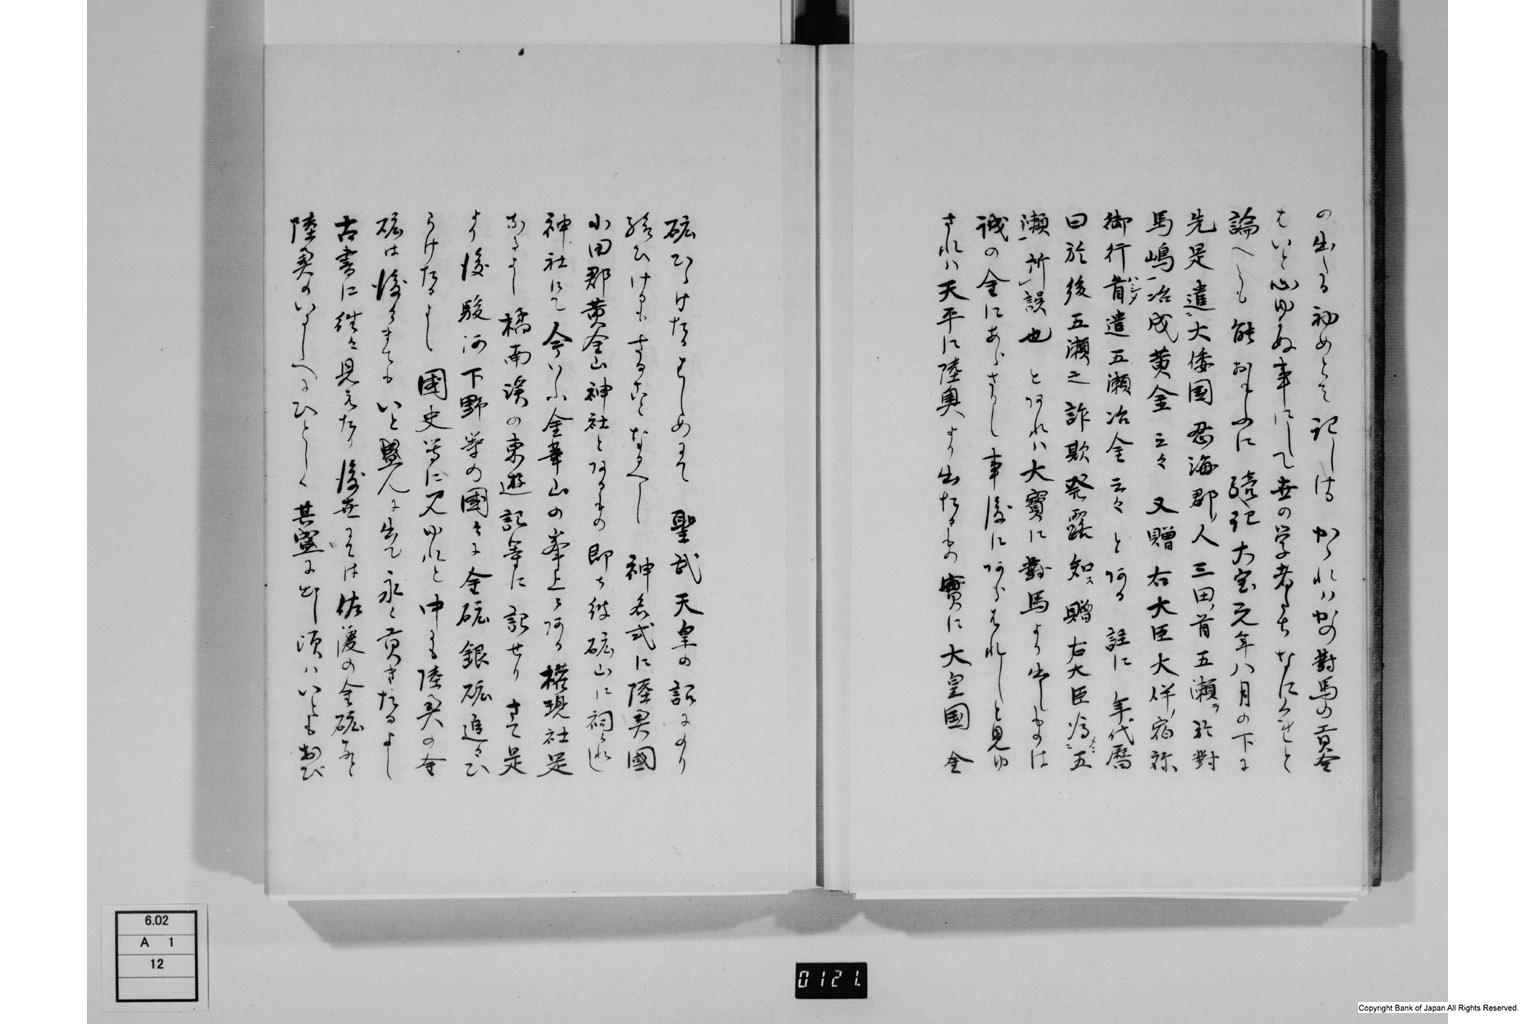 の出たる初めとそ記しける かゝれハかの對馬の貢金
はいと心ゆかぬ事にして世の学者たち なにくせと
論へとも 能おもふに 続記大宝元年八月の下に
先是遣大倭國忍海郡人三田首五瀬於對
馬嶋冶成黄金 云々 又贈右大臣大伴宿祢
御行首遣五瀬冶金 云々 とある 註に 年代暦
曰於後五瀬之詐欺発露知贈右大臣為五
瀬所誤也 とあれハ大寶に對馬より出しものは
誠の金にあらさりし事後にあらはれしと見ゆ
されハ天平に陸奥より出たるもの實に大皇国 金
砿ひらけたるはしめにて 聖武天皇の詔にのり
給ひけるも するなるへし 神名式に陸奥國
小田郡黄金山神社とあるもの即ち彼砿山に祠られし
神社にて今いふ金華山の峯上にある権現社是
なるよし 橘南谿の東遊記等に記せり さて是
より後駿河下野等の國々に金砿銀砿追々ひ
らけたるよし 國史等に見ゆれと中も陸奥の金
砿は後々まても いと盛んに出て永く貢きたるよし
古書に往々見えたり 後世にては佐渡の金砿なと
陸奥のいにしへにひとしく其盛に出し頃ハいとも